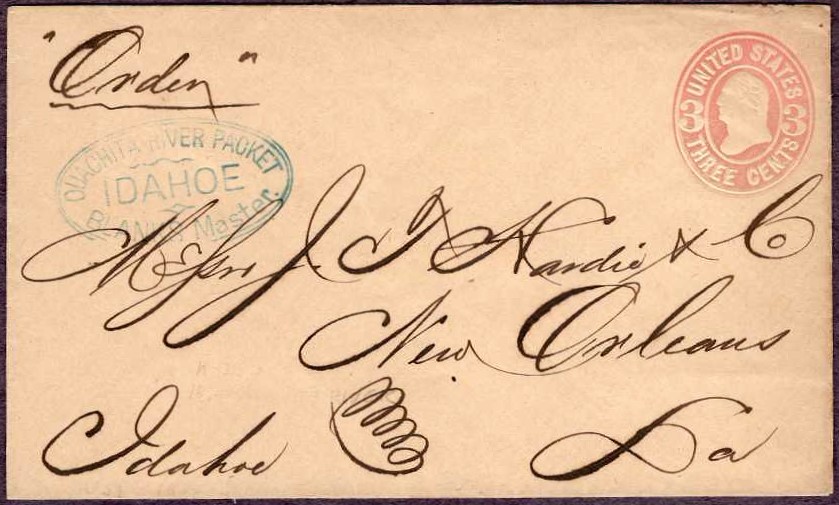 "Order"
UNITED STATES
3 3
THREE CENTS
OUACHITA RIVER PACKET
IDAHOE
Master.
Messrs J. T Hardie & Co
New Orleans
Idahoe La